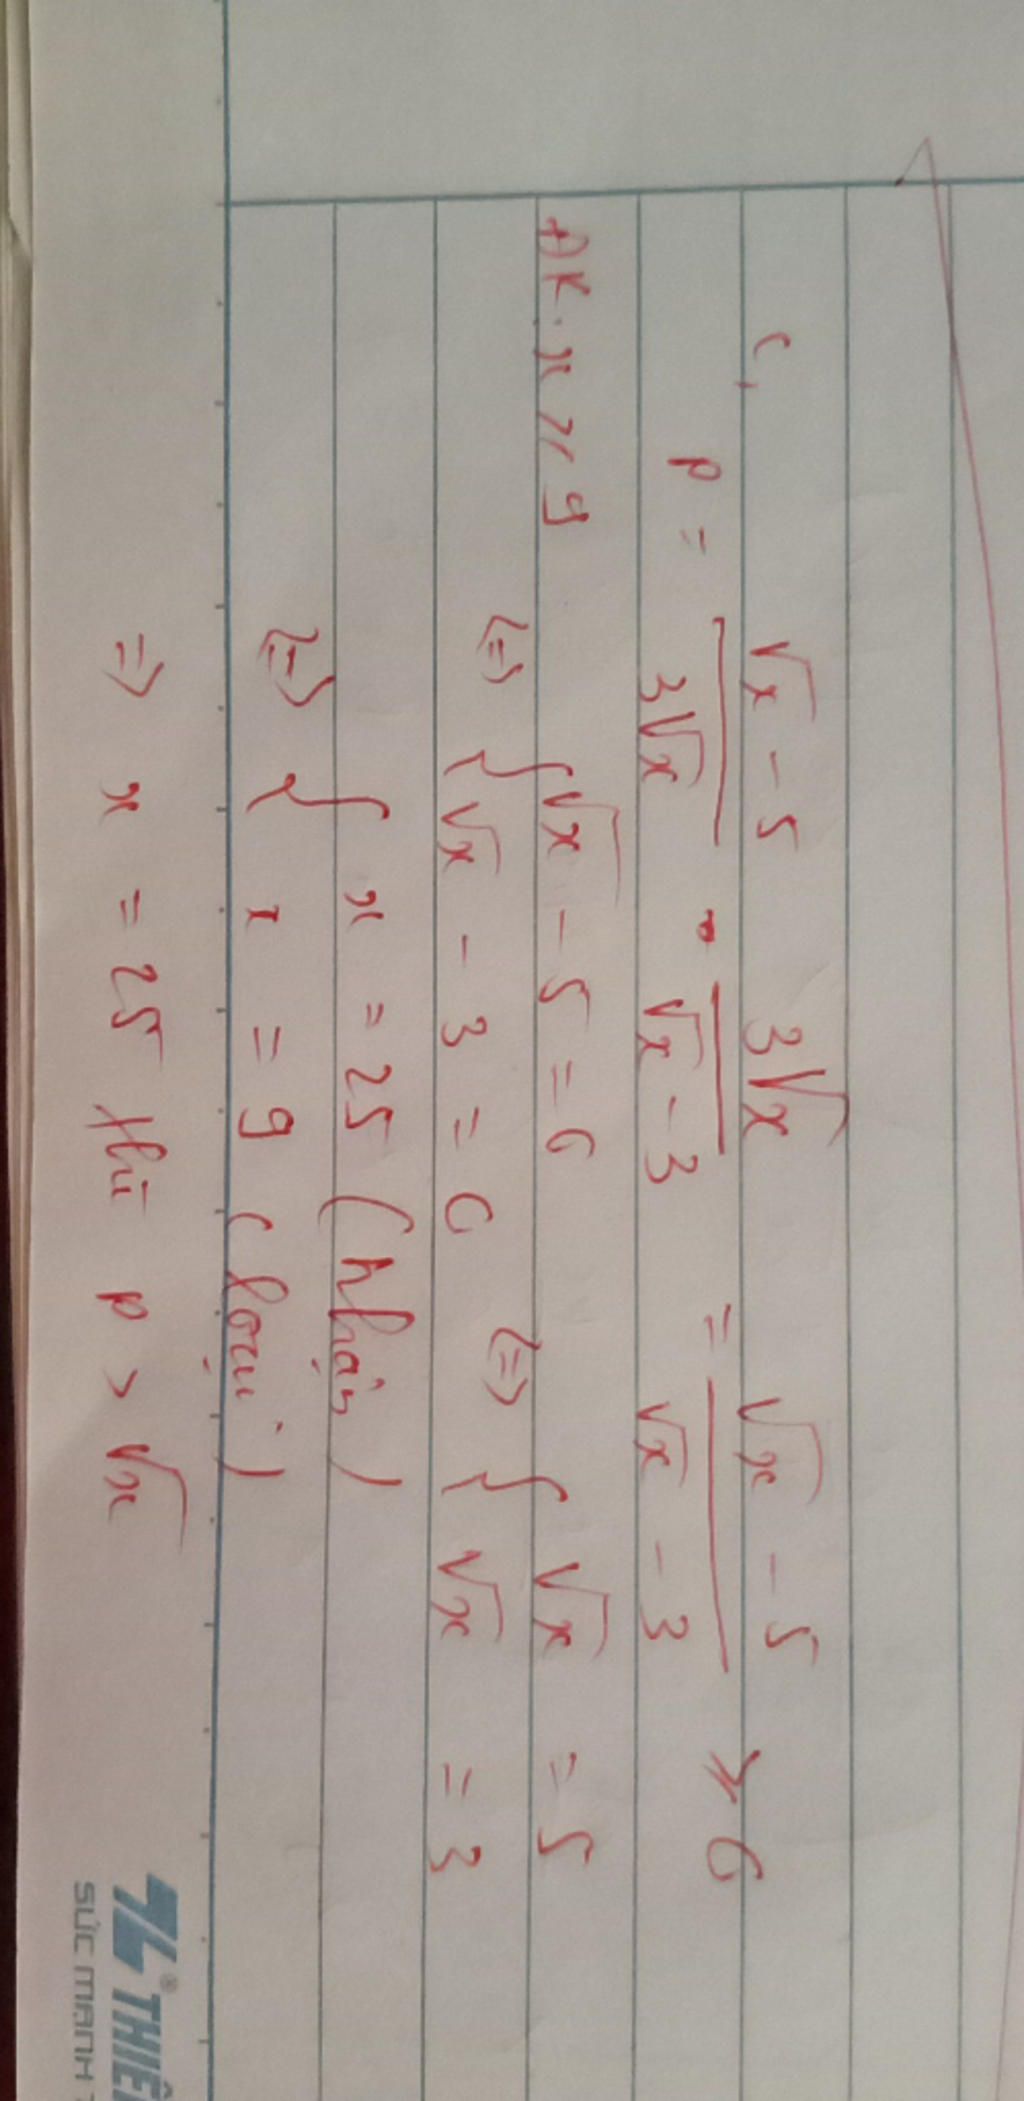 c,
P = √x - 5 / 3√x · 3√x / √x - 3 = √x - 5 / √x - 3 ≥ 0
ĐK: x ≥ 9
<=> { √x - 5 = 0 <=> { √x = 5
√x - 3 = 0 √x = 3
<=> { x = 25 (nhận)
x = 9 (loại)
=> x = 25 thì P > √x
THIÊ
SỨC MẠNH